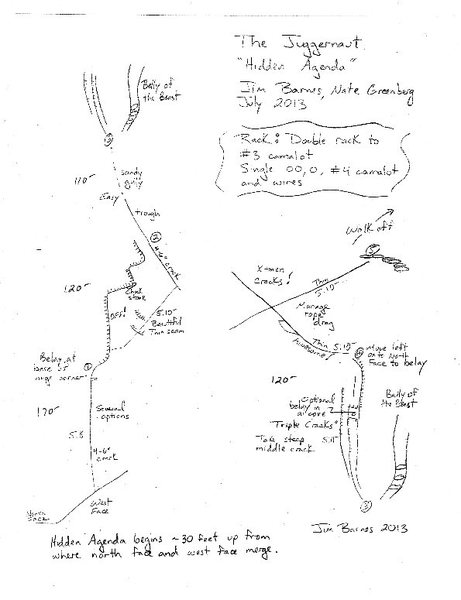 The Juggernaut
"Hidden Agenda"
Jim Barnes, Nate Greenberg
July 2013
Rack: Double rack to
#3 camalot
Single 00, 0, #4 camalot
and wires
Belly of
the Beast
3
sandy
gully
110'
Easy
trough
2
4-6" crack
120'
Chock
stone
OW!
5.10-
Beautiful
Thin seam
Belay at
base of
huge corner
1
170'
Several
options
5.8
4-6"
crack
West
Face
North
Face
Hidden Agenda begins ~30 feet up from
where north face and west face merge.
Walk off
5
X-men
Cracks!
Thin
5.10-
Manage
rope
drag
Thin
5.10-
4
Move left
onto North
Face to belay
120'
Optional
belay in
alcove
"Triple Cracks"
Take steep
middle crack
5.11-
Belly of
the Beast
3
Jim Barnes 2013